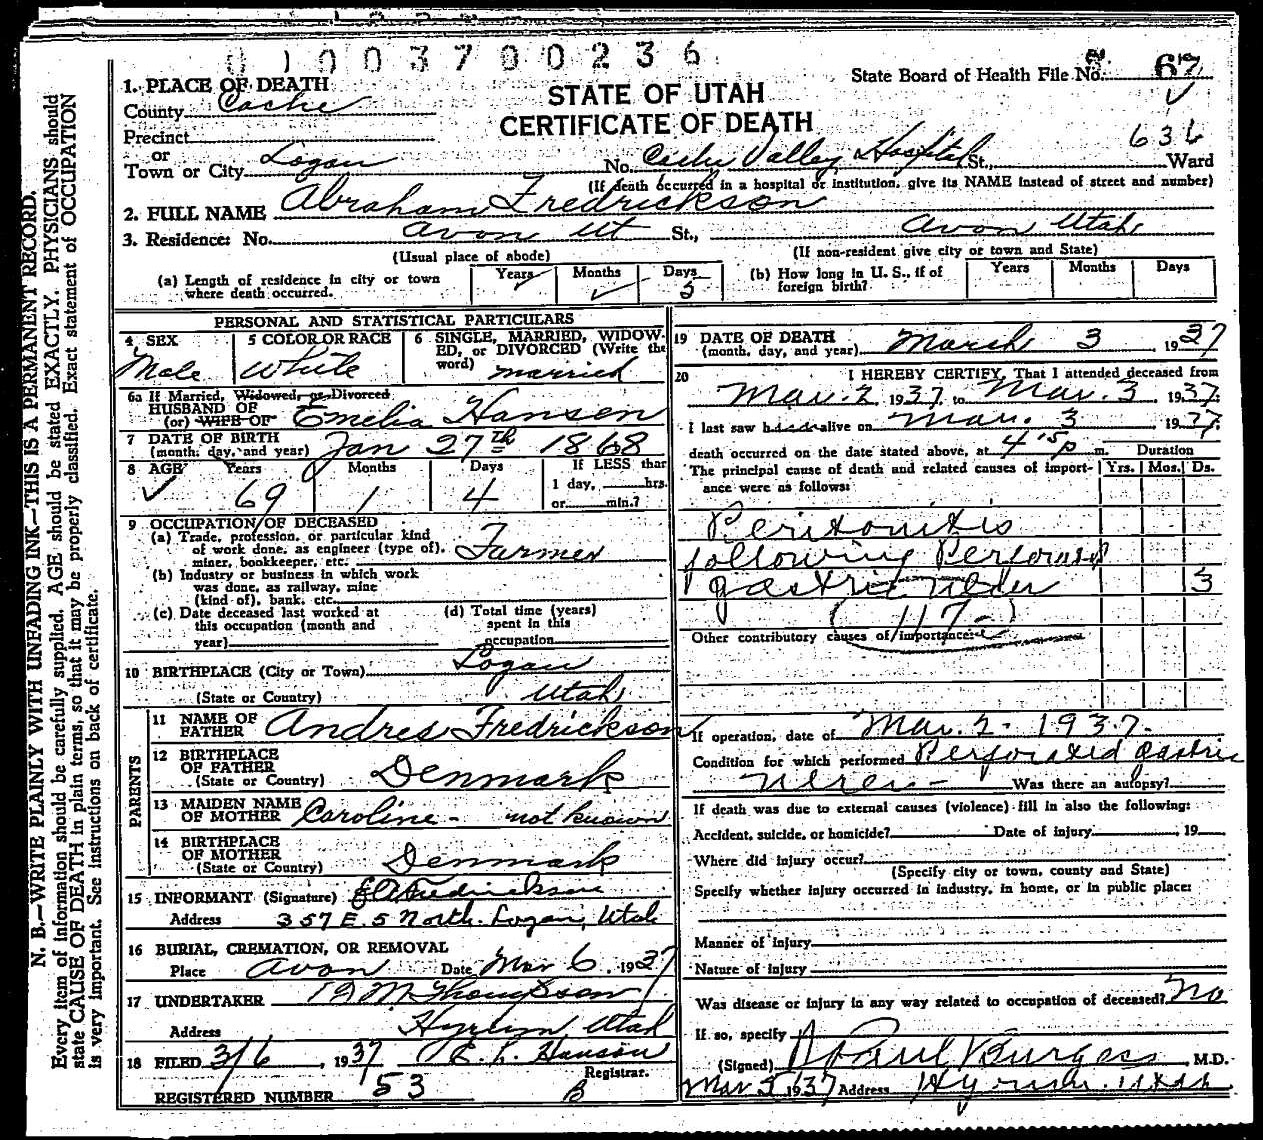 0100370 0236
State Board of Health File No. 67
STATE OF UTAH
CERTIFICATE OF DEATH
1. PLACE OF DEATH
County Cache
Precinct
or
Town or City Logan No. Cache Valley Hospital St. Ward
636
(If death occurred in a hospital or institution, give its NAME instead of street and number)
2. FULL NAME Abraham Fredrickson
3. Residence: No. Avon Ut St., Avon Utah
(Usual place of abode) (If non-resident give city or town and State)
(a) Length of residence in city or town where death occurred. Years Months Days 5
(b) How long in U. S., if of foreign birth? Years Months Days
PERSONAL AND STATISTICAL PARTICULARS
4 SEX Male
5 COLOR OR RACE White
6 SINGLE, MARRIED, WIDOWED, or DIVORCED (Write the word) married
6a If Married, Widowed, or Divorced
HUSBAND OF
(or) WIFE OF Emelia Hansen
7 DATE OF BIRTH
(month, day, and year) Jan 27th 1868
8 AGE Years 69 Months 1 Days 4 If LESS than 1 day, hrs. or min.?
9 OCCUPATION OF DECEASED
(a) Trade, profession, or particular kind
of work done, as engineer (type of),
miner, bookkeeper, etc. Farmer
(b) Industry or business in which work
was done, as railway, mine
(kind of), bank, etc.
(c) Date deceased last worked at
this occupation (month and
year)
(d) Total time (years)
spent in this
occupation
10 BIRTHPLACE (City or Town) Logan
(State or Country) Utah
PARENTS
11 NAME OF FATHER Andres Fredrickson
12 BIRTHPLACE OF FATHER
(State or Country) Denmark
13 MAIDEN NAME OF MOTHER Caroline - not known
14 BIRTHPLACE OF MOTHER
(State or Country) Denmark
15 INFORMANT (Signature) Fredrickson
Address 357 E. 5 North Logan, Utah
16 BURIAL, CREMATION, OR REMOVAL
Place Avon Date Mar 6, 1937
17 UNDERTAKER Thompson
Address Hyrum Utah
18 FILED 3/6, 1937 Hanson
Registrar.
REGISTERED NUMBER 53 B
19 DATE OF DEATH
(month, day, and year) March 3 1937
20 I HEREBY CERTIFY, That I attended deceased from
Mar. 2 1937 to Mar. 3 1937.
I last saw h alive on Mar. 3 1937.
death occurred on the date stated above, at 4 15 p m. Duration
The principal cause of death and related causes of importance were as follows: Yrs. Mos. Ds.
Peritonitis
following Perforated
gastric ulcer 3
(117-)
Other contributory causes of importance:
If operation, date of Mar. 2 - 1937.
Condition for which performed Perforated gastric
ulcer - Was there an autopsy?
If death was due to external causes (violence) fill in also the following:
Accident, suicide, or homicide? Date of injury , 19
Where did injury occur?
(Specify city or town, county and State)
Specify whether injury occurred in industry, in home, or in public place:
Manner of injury
Nature of injury
Was disease or injury in any way related to occupation of deceased? No
If so, specify
(Signed) Paul Burgess, M.D.
Mar 5 1937 Address Hyrum, Utah
N. B.—WRITE PLAINLY WITH UNFADING INK—THIS IS A PERMANENT RECORD.
Every item of information should be carefully supplied. AGE should be stated EXACTLY. PHYSICIANS should
state CAUSE OF DEATH in plain terms, so that it may be properly classified. Exact statement of OCCUPATION
is very important. See instructions on back of certificate.